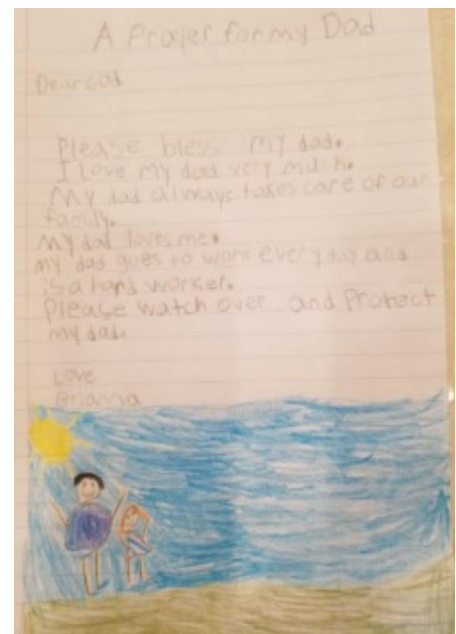 A Prayer for my Dad
Dear God
Please bless my dad.
I Love my dad very much.
My dad always takes care of our
family.
my dad loves me.
my dad goes to work every day and
is a hard worker.
Please watch over and Protect
my dad.
Love
Brianna